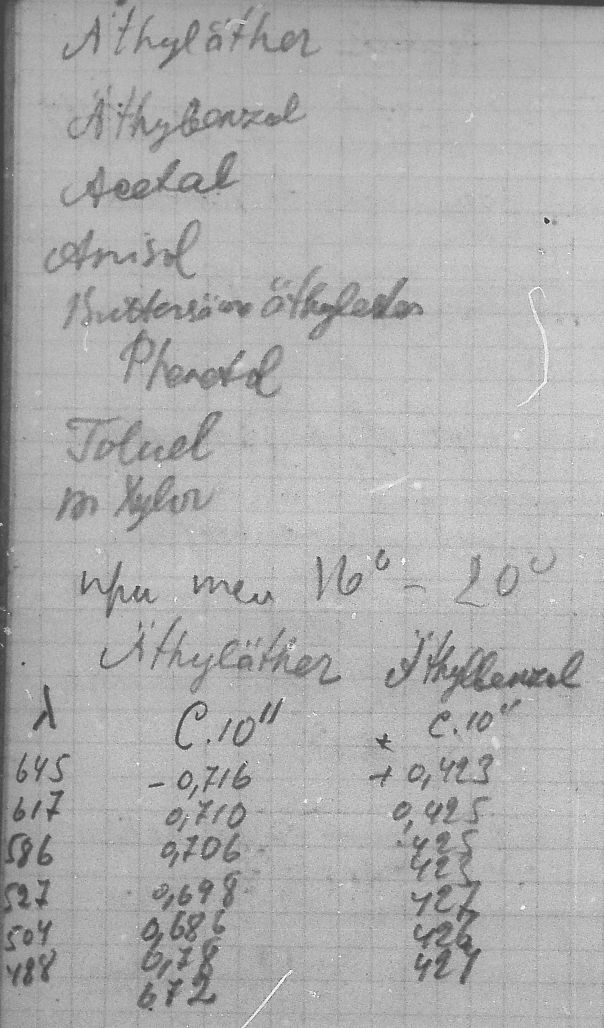 Äthyläther
Äthylbenzol
Acetal
Anisol
Buttersäure äthylester
Phenetol
Toluol
m Xylol
при тем 16° - 20°
Äthyläther Äthylbenzol
λ C.10" C.10"
645 - 0,716 + 0,423
617 0,710 0,425
586 0,706 425
423
527 0,698 427
504 0,686 426
488 0,78 421
672